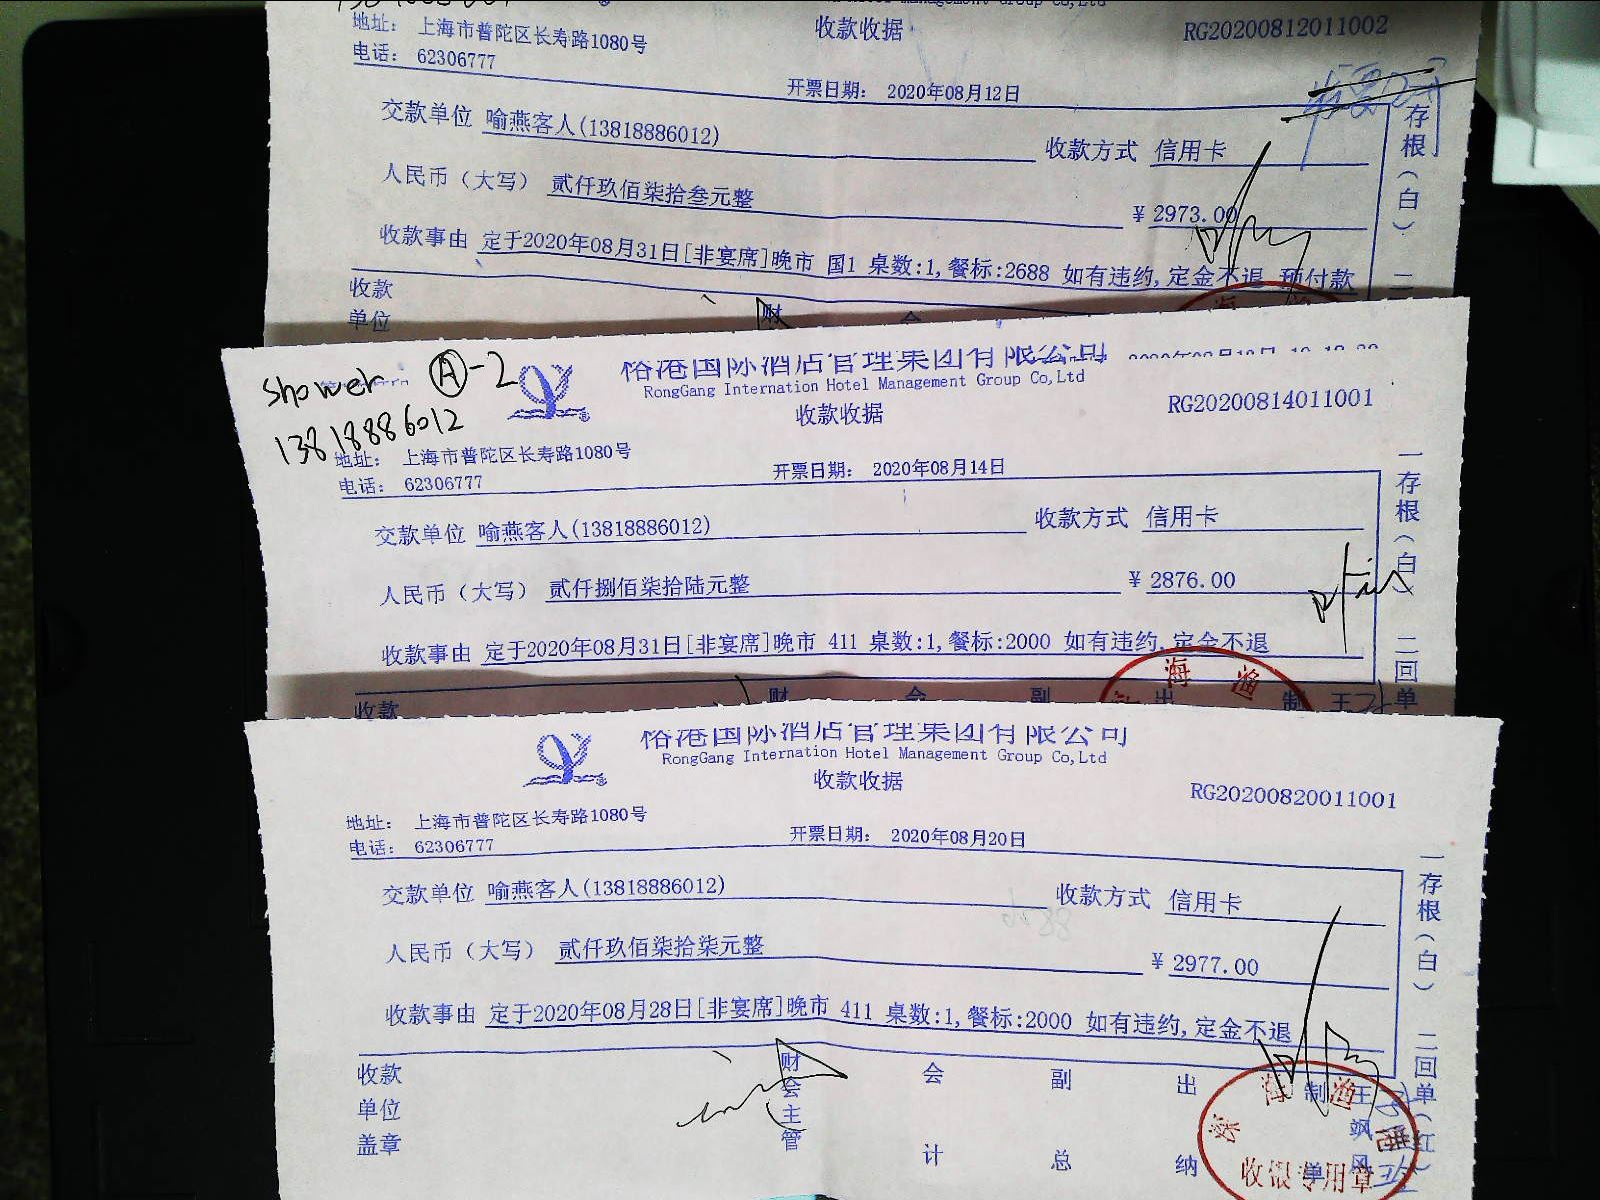 地址: 上海市普陀区长寿路1080号
收款收据
RG20200812011002
电话: 62306777
开票日期: 2020年08月12日
交款单位 喻燕客人(13818886012)
收款方式 信用卡
人民币（大写） 贰仟玖佰柒拾叁元整
¥ 2973.00
收款事由 定于2020年08月31日[非宴席]晚市 国1 桌数:1,餐标:2688 如有违约,定金不退 预付款
存根（白）二
收款
单位
财
会
Shower Ⓐ-2
13818886012
裕港国际酒店管理集团有限公司
RongGang Internation Hotel Management Group Co,Ltd
收款收据
RG20200814011001
地址: 上海市普陀区长寿路1080号
电话: 62306777
开票日期: 2020年08月14日
交款单位 喻燕客人(13818886012)
收款方式 信用卡
人民币（大写） 贰仟捌佰柒拾陆元整
¥ 2876.00
收款事由 定于2020年08月31日[非宴席]晚市 411 桌数:1,餐标:2000 如有违约,定金不退
一存根（白）二回单
收款
财 会 副 出 制 王
海 渔
裕港国际酒店管理集团有限公司
RongGang Internation Hotel Management Group Co,Ltd
收款收据
RG20200820011001
地址: 上海市普陀区长寿路1080号
电话: 62306777
开票日期: 2020年08月20日
交款单位 喻燕客人(13818886012)
收款方式 信用卡
人民币（大写） 贰仟玖佰柒拾柒元整
¥ 2977.00
收款事由 定于2020年08月28日[非宴席]晚市 411 桌数:1,餐标:2000 如有违约,定金不退
一存根（白）二回单（红）
收款
单位
盖章
财会主管
会计
副总
出纳
制单
王飒风
海 渔
收银专用章